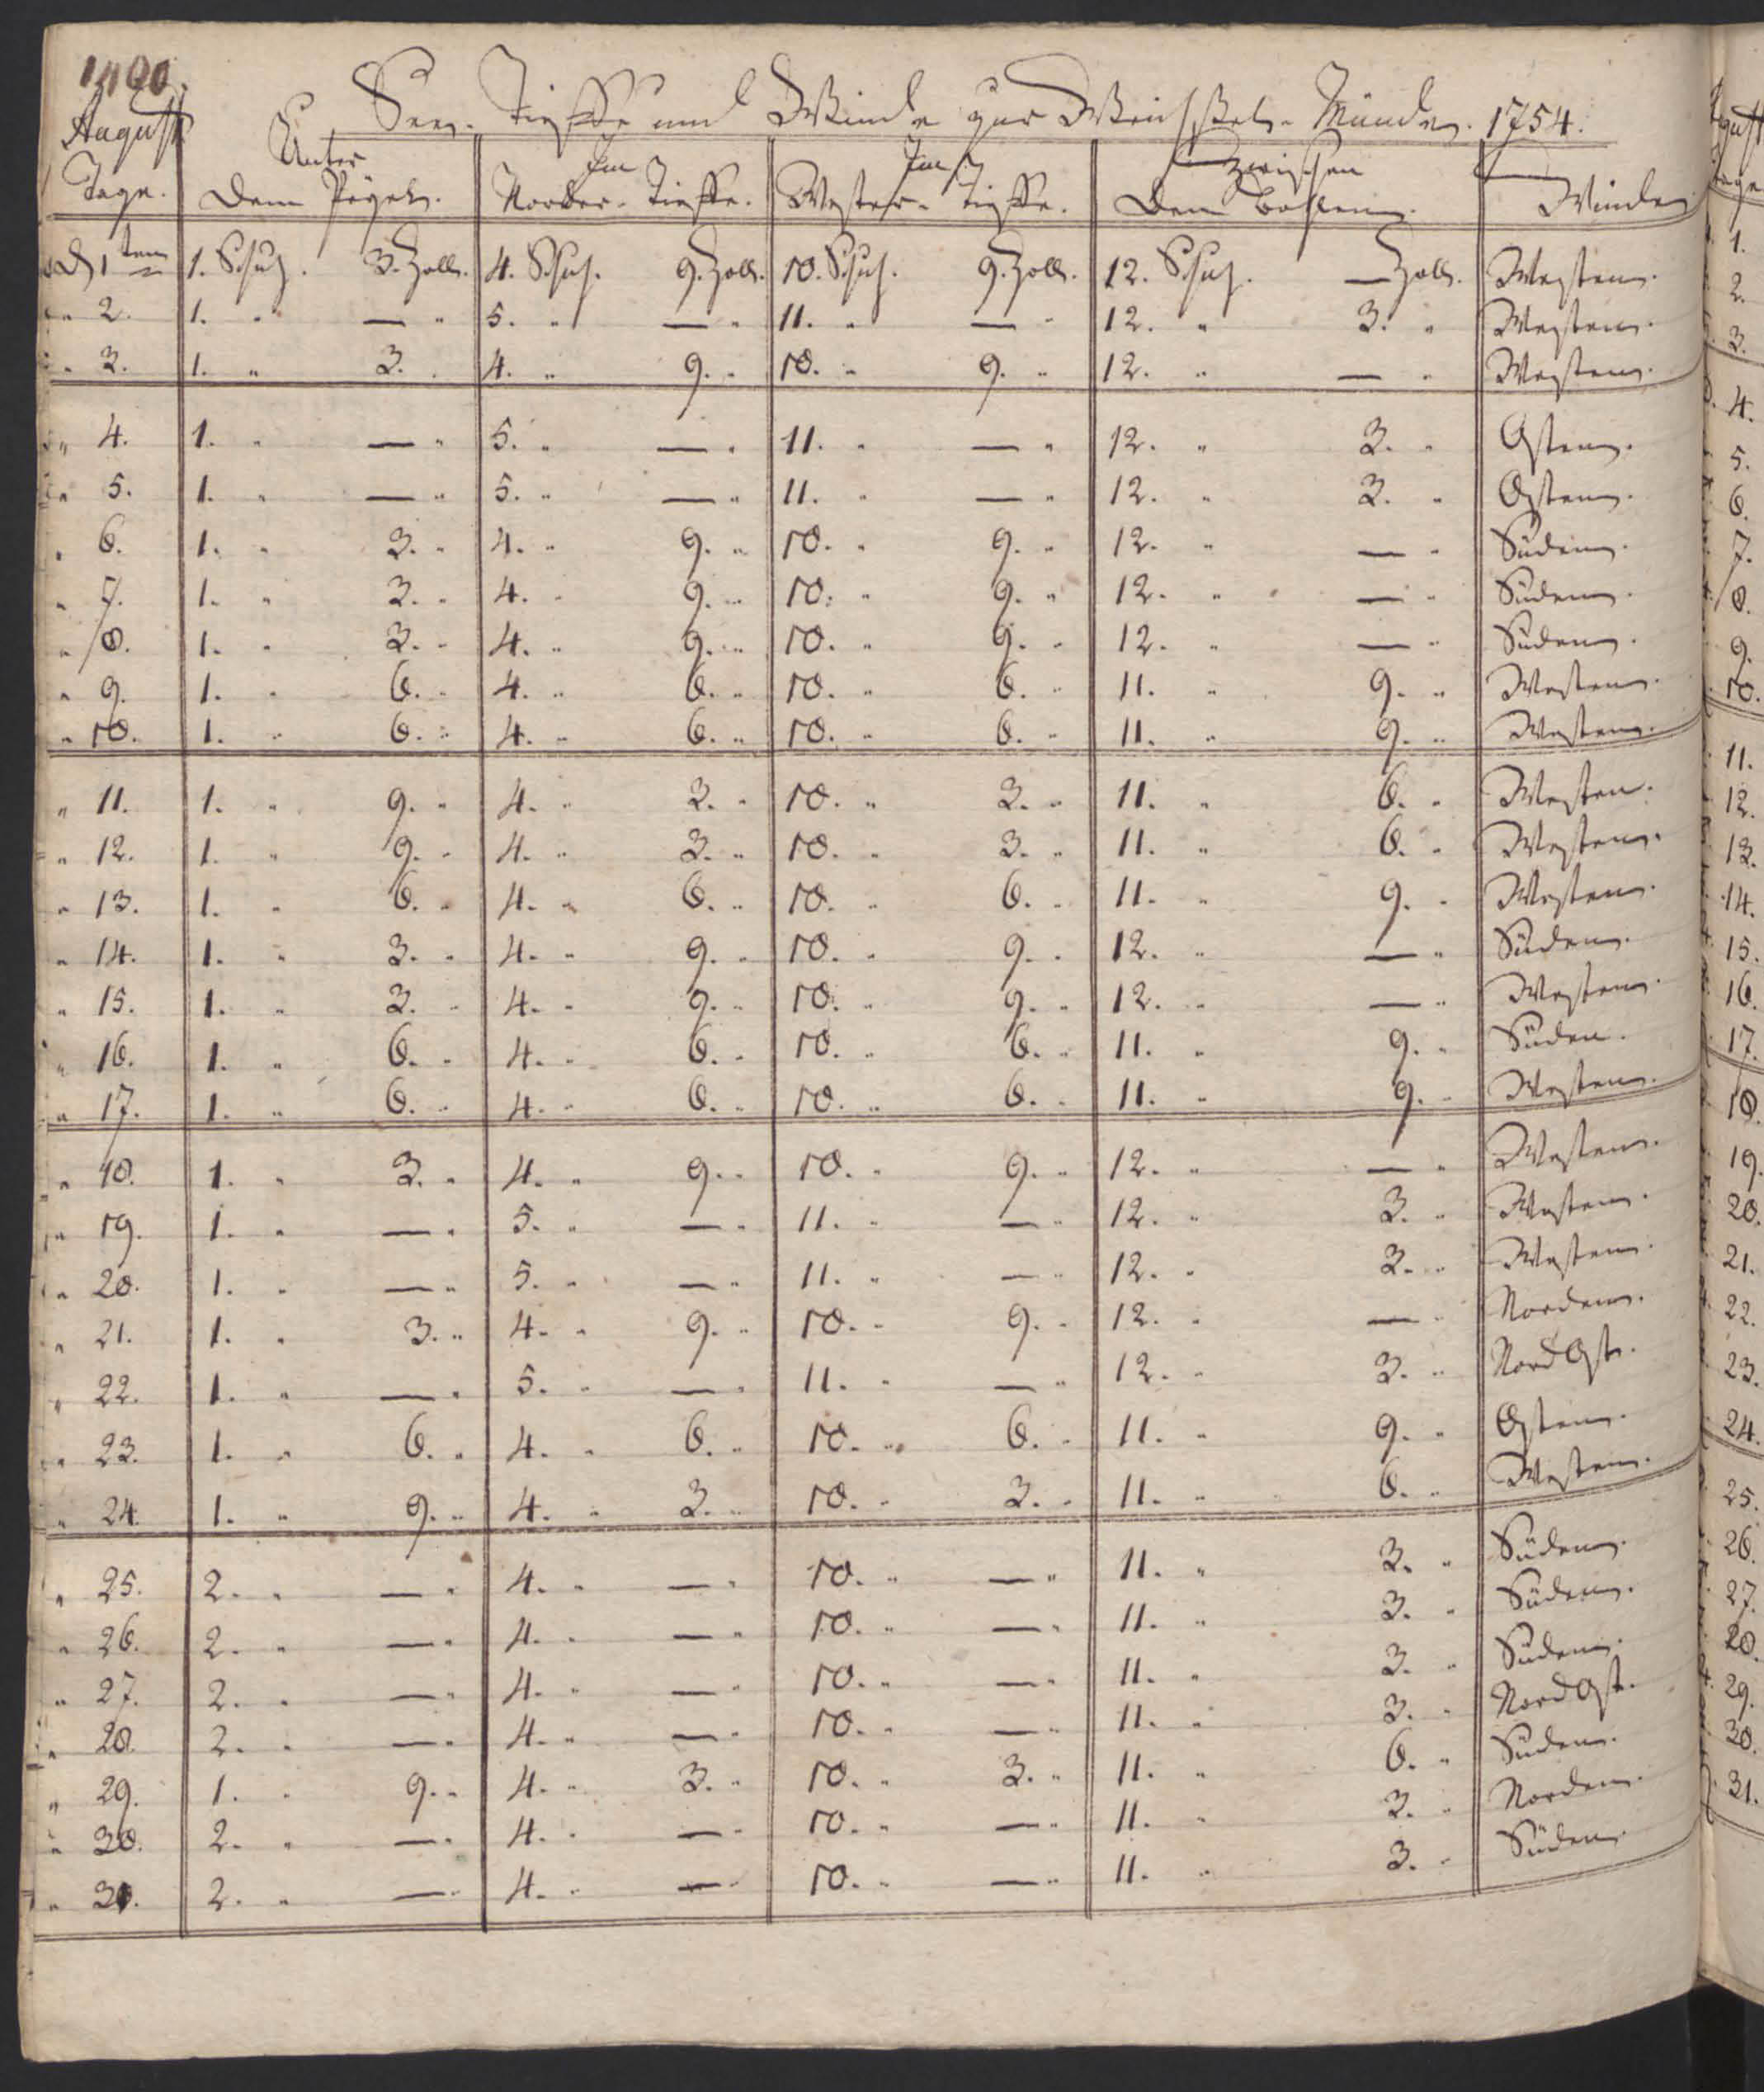 1400.
See- Tieffe und Winde zur Weichßel- Münde. 1754.
August Unter Im Im Zwischen
Tage. dem Pegel. Norder- Tieffe. Wester- Tieffe. den Winde
d 1ten 1. Schuh. 3. Zoll. 4. Schuh. 9. Zoll. 10. Schuh. 9. Zoll. 12. Schuh. — Zoll. Westen.
" 2. 1. " — " 5. " — " 11. " — " 12. " 3. " Westen.
" 3. 1. " 3. " 4. " 9. " 10. " 9. " 12. " — " Westen.
" 4. 1. " — " 5. " — " 11. " — " 12. " 3. " Osten.
" 5. 1. " — " 5. " — " 11. " — " 12. " 3. " Osten.
" 6. 1. " 3. " 4. " 9. " 10. " 9. " 12. " — " Süden.
" 7. 1. " 3. " 4. " 9. " 10. " 9. " 12. " — " Süden.
" 8. 1. " 3. " 4. " 9. " 10. " 9. " 12. " — " Süden.
" 9. 1. " 6. " 4. " 6. " 10. " 6. " 11. " 9. " Westen.
" 10. 1. " 6. " 4. " 6. " 10. " 6. " 11. " 9. " Westen.
" 11. 1. " 9. " 4. " 3. " 10. " 3. " 11. " 6. " Westen.
" 12. 1. " 9. " 4. " 3. " 10. " 3. " 11. " 6. " Westen.
" 13. 1. " 6. " 4. " 6. " 10. " 6. " 11. " 9. " Westen.
" 14. 1. " 3. " 4. " 9. " 10. " 9. " 12. " — " Süden.
" 15. 1. " 3. " 4. " 9. " 10. " 9. " 12. " — " Westen.
" 16. 1. " 6. " 4. " 6. " 10. " 6. " 11. " 9. " Süden.
" 17. 1. " 6. " 4. " 6. " 10. " 6. " 11. " 9. " Westen.
" 18. 1. " 3. " 4. " 9. " 10. " 9. " 12. " — " Westen.
" 19. 1. " — " 5. " — " 11. " — " 12. " 3. " Westen.
" 20. 1. " — " 5. " — " 11. " — " 12. " 3. " Westen.
" 21. 1. " 3. " 4. " 9. " 10. " 9. " 12. " — " Norden.
" 22. 1. " — " 5. " — " 11. " — " 12. " 3. " Nord Ost.
" 23. 1. " 6. " 4. " 6. " 10. " 6. " 11. " 9. " Osten.
" 24. 1. " 9. " 4. " 3. " 10. " 3. " 11. " 6. " Westen.
" 25. 2. " — " 4. " — " 10. " — " 11. " 3. " Süden.
" 26. 2. " — " 4. " — " 10. " — " 11. " 3. " Süden.
" 27. 2. " — " 4. " — " 10. " — " 11. " 3. " Süden.
" 28. 2. " — " 4. " — " 10. " — " 11. " 3. " Nord Ost.
" 29. 1. " 9. " 4. " 3. " 10. " 3. " 11. " 6. " Süden.
" 30. 2. " — " 4. " — " 10. " — " 11. " 3. " Norden.
" 31. 2. " — " 4. " — " 10. " — " 11. " 3. " Süden.
1.
2.
3.
4.
5.
6.
7.
8.
9.
10.
11.
12.
13.
14.
15.
16.
17.
18.
19.
20.
21.
22.
23.
24.
25.
26.
27.
28.
29.
30.
31.